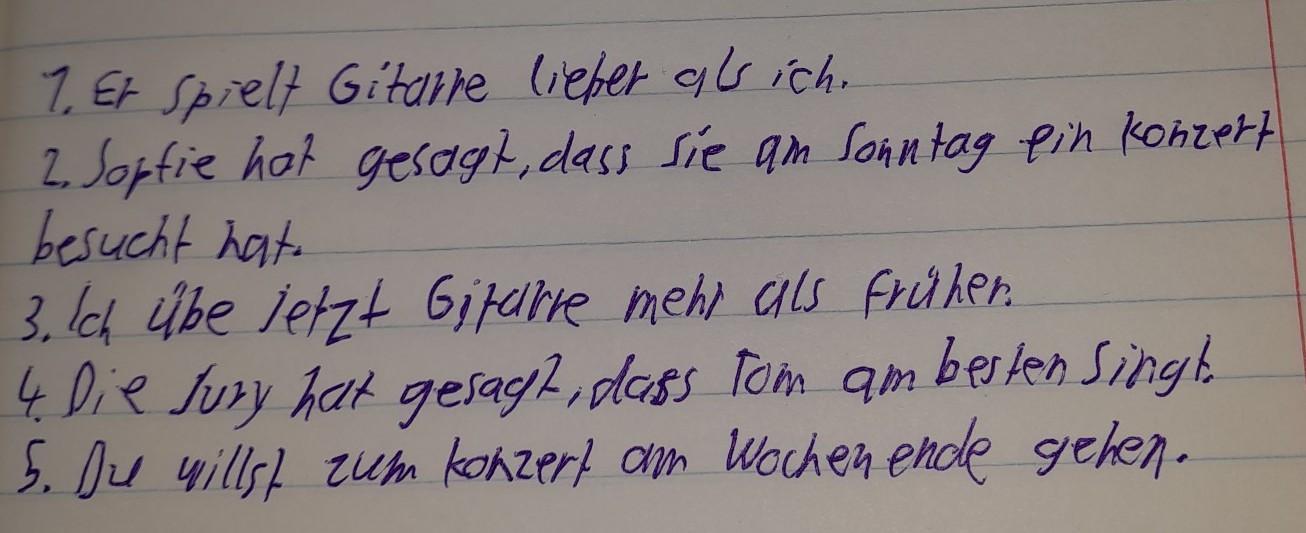 1. Er spielt Gitarre lieber als ich.
2. Sopfie hat gesagt, dass sie am Sonntag ein konzert
besucht hat.
3. Ich übe jetzt Gitarre mehr als früher.
4. Die Jury hat gesagt, dass Tom am besten singt.
5. Du willst zum konzert am Wochenende gehen.